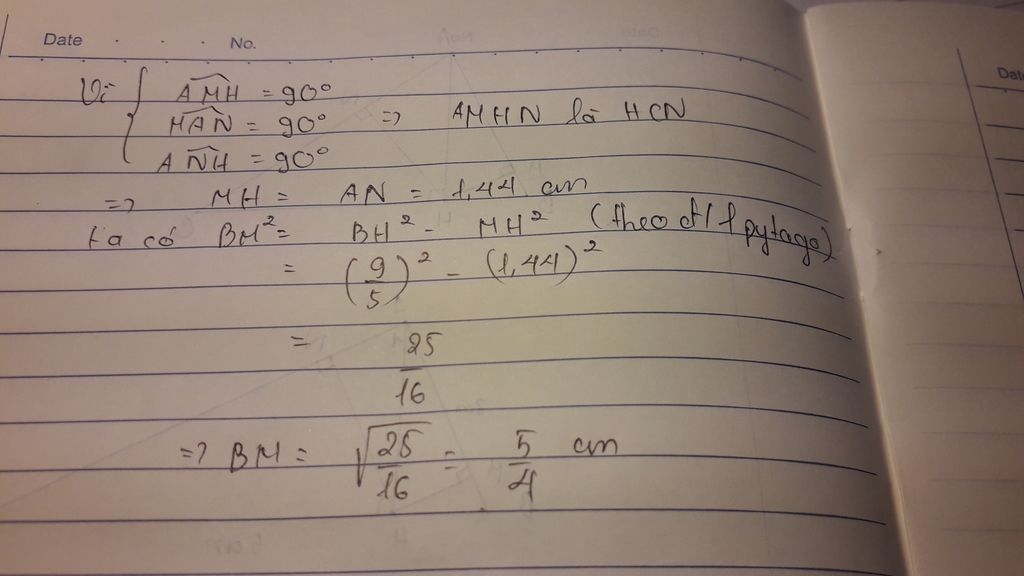 Date . . . No.
Vì { AMH = 90°
HAN = 90° => AMHN là HCN
ANH = 90°
=> MH = AN = 1,44 cm
ta có BM² = BH² - MH² (theo đ/l pytago)
= (9/5)² - (1,44)²
= 25/16
=> BM = √25/16 = 5/4 cm
Date